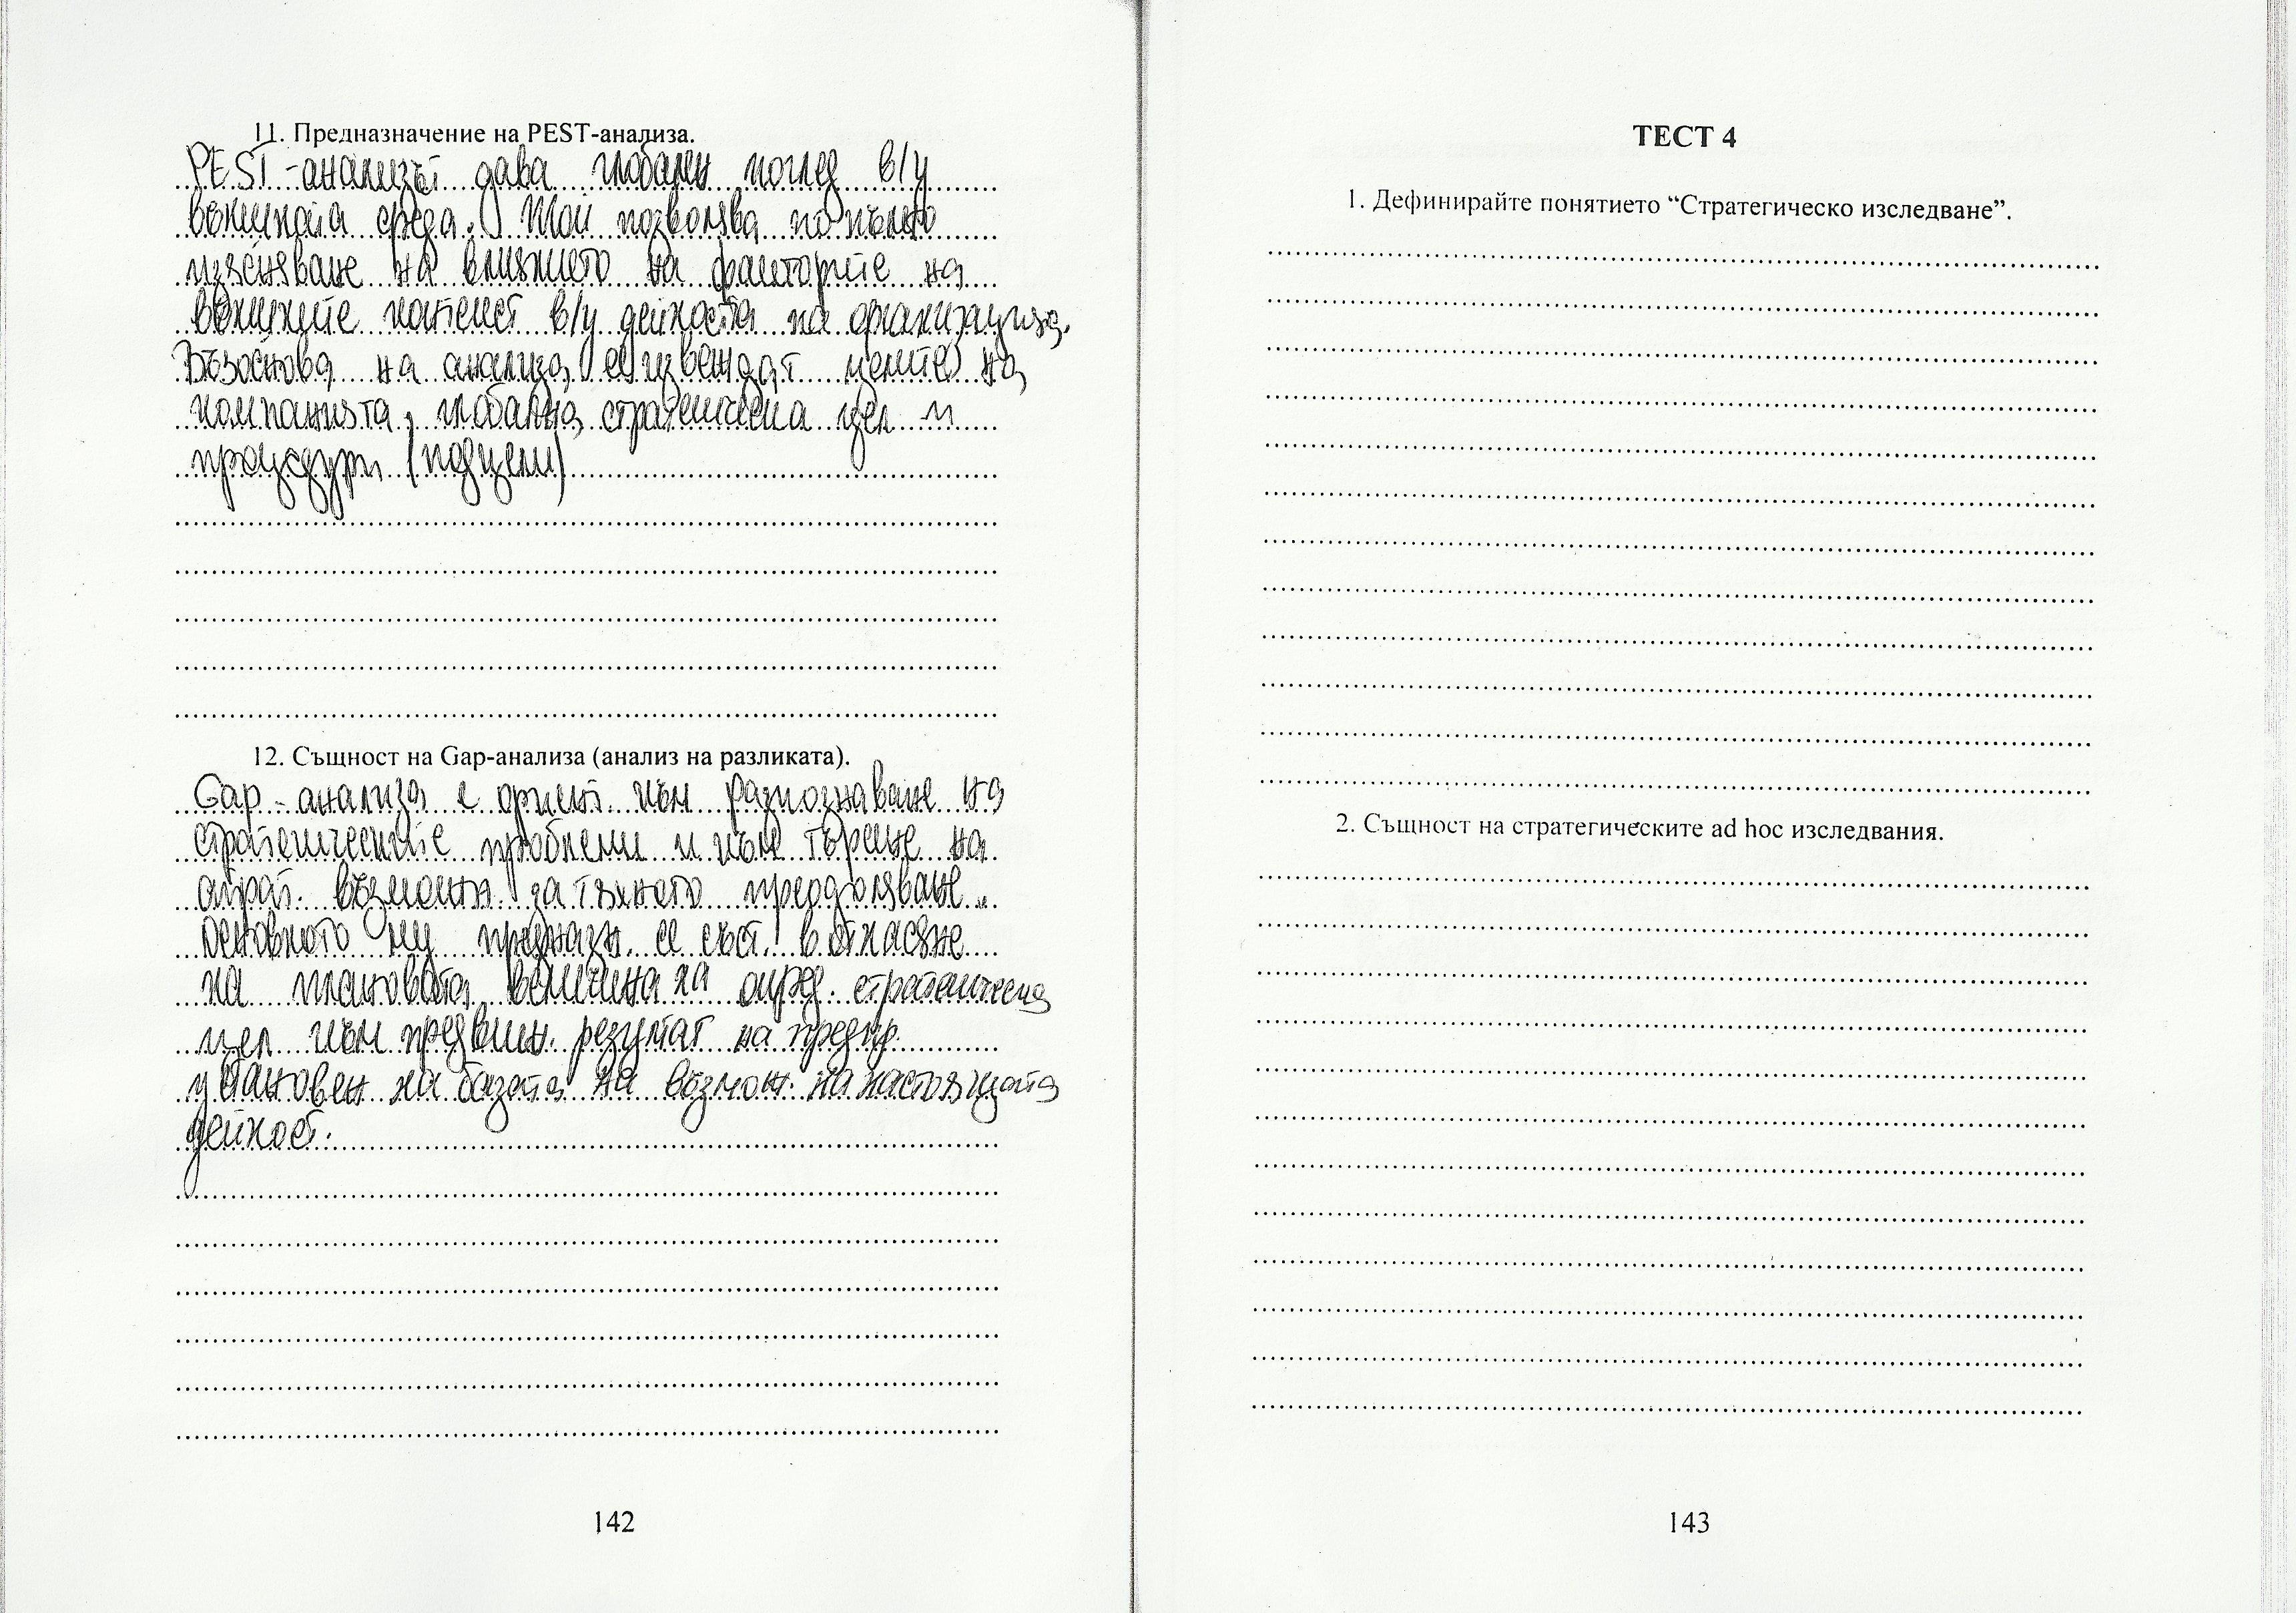 11. Предназначение на PEST-анализа.
PEST-анализът дава глобален поглед в/у
външната среда. Той позволява по-пълно
изясняване на влиянието на факторите на
външните контекст в/у дейността на организация.
Въз основа на анализа се извеждат целите на
компанията, глобална стратегическа цел и
процедури (подцели)
12. Същност на Gap-анализа (анализ на разликата).
Gap-анализа е ориент. към разпознаване на
стратегическите проблеми и към търсене на
страт. възможн. за тяхното преодоляване.
Основното му предназн. се съст. в отнасяне
на плановата величина на опред. стратегическа
цел към предвин. резултат на предпр.
установен на базата на възмож. на настоящата
дейност.
142
ТЕСТ 4
1. Дефинирайте понятието “Стратегическо изследване”.
2. Същност на стратегическите ad hoc изследвания.
143